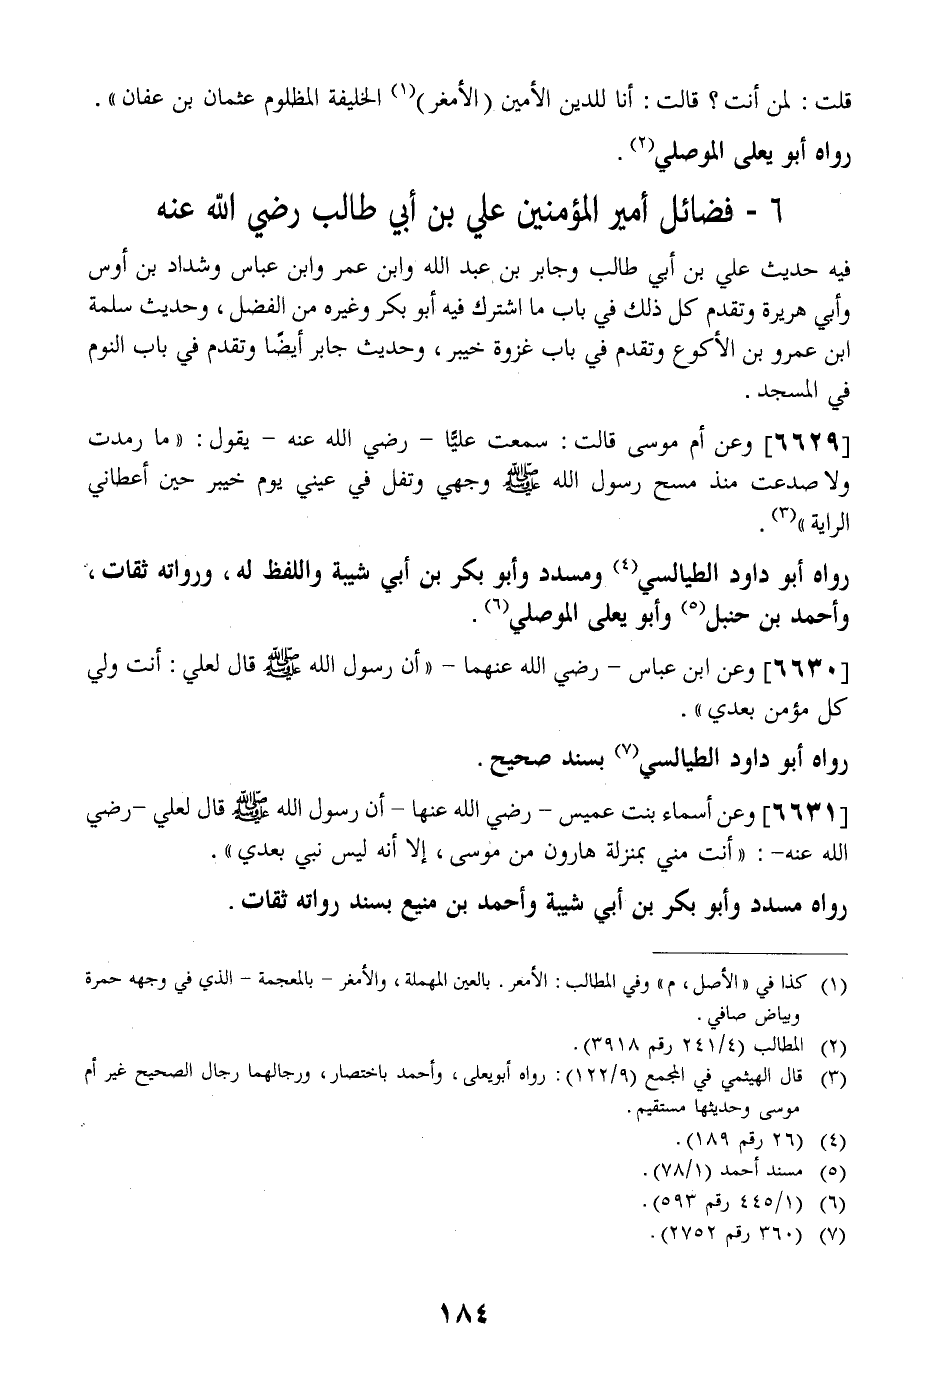 قلت : لمن أنت ؟ قالت : أنا للدين الأمين (الأمغر)(١) الخليفة المظلوم عثمان بن عفان» .
رواه أبو يعلى الموصلي(٢) .
٦ - فضائل أمير المؤمنين علي بن أبي طالب رضي الله عنه
فيه حديث علي بن أبي طالب وجابر بن عبد الله وابن عمر وابن عباس وشداد بن أوس
وأبي هريرة وتقدم كل ذلك في باب ما اشترك فيه أبو بكر وغيره من الفضل ، وحديث سلمة
ابن عمرو بن الأكوع وتقدم في باب غزوة خيبر ، وحديث جابر أيضًا وتقدم في باب النوم
في المسجد .
[٦٦٢٩] وعن أم موسى قالت : سمعت عليًّا - رضي الله عنه - يقول : «ما رمدت
ولا صدعت منذ مسح رسول الله ﷺ وجهي وتفل في عيني يوم خيبر حين أعطاني
الراية»(٣) .
رواه أبو داود الطيالسي(٤) ومسدد وأبو بكر بن أبي شيبة واللفظ له ، ورواته ثقات ،
وأحمد بن حنبل(٥) وأبو يعلى الموصلي(٦) .
[٦٦٣٠] وعن ابن عباس - رضي الله عنهما - «أن رسول الله ﷺ قال لعلي : أنت ولي
كل مؤمن بعدي» .
رواه أبو داود الطيالسي(٧) بسند صحيح .
[٦٦٣١] وعن أسماء بنت عميس - رضي الله عنها - أن رسول الله ﷺ قال لعلي -رضي
الله عنه- : «أنت مني بمنزلة هارون من موسى ، إلا أنه ليس نبي بعدي» .
رواه مسدد وأبو بكر بن أبي شيبة وأحمد بن منيع بسند رواته ثقات .
(١) كذا في «الأصل ، م» وفي المطالب : الأمعر . بالعين المهملة ، والأمغر - بالمعجمة - الذي في وجهه حمرة
وبياض صافي .
(٢) المطالب (٢٤١/٤ رقم ٣٩١٨) .
(٣) قال الهيثمي في المجمع (١٢٢/٩) : رواه أبويعلى ، وأحمد باختصار ، ورجالهما رجال الصحيح غير أم
موسى وحديثها مستقيم .
(٤) (٢٦ رقم ١٨٩) .
(٥) مسند أحمد (٧٨/١) .
(٦) (٤٤٥/١ رقم ٥٩٣) .
(٧) (٣٦٠ رقم ٢٧٥٢) .
١٨٤